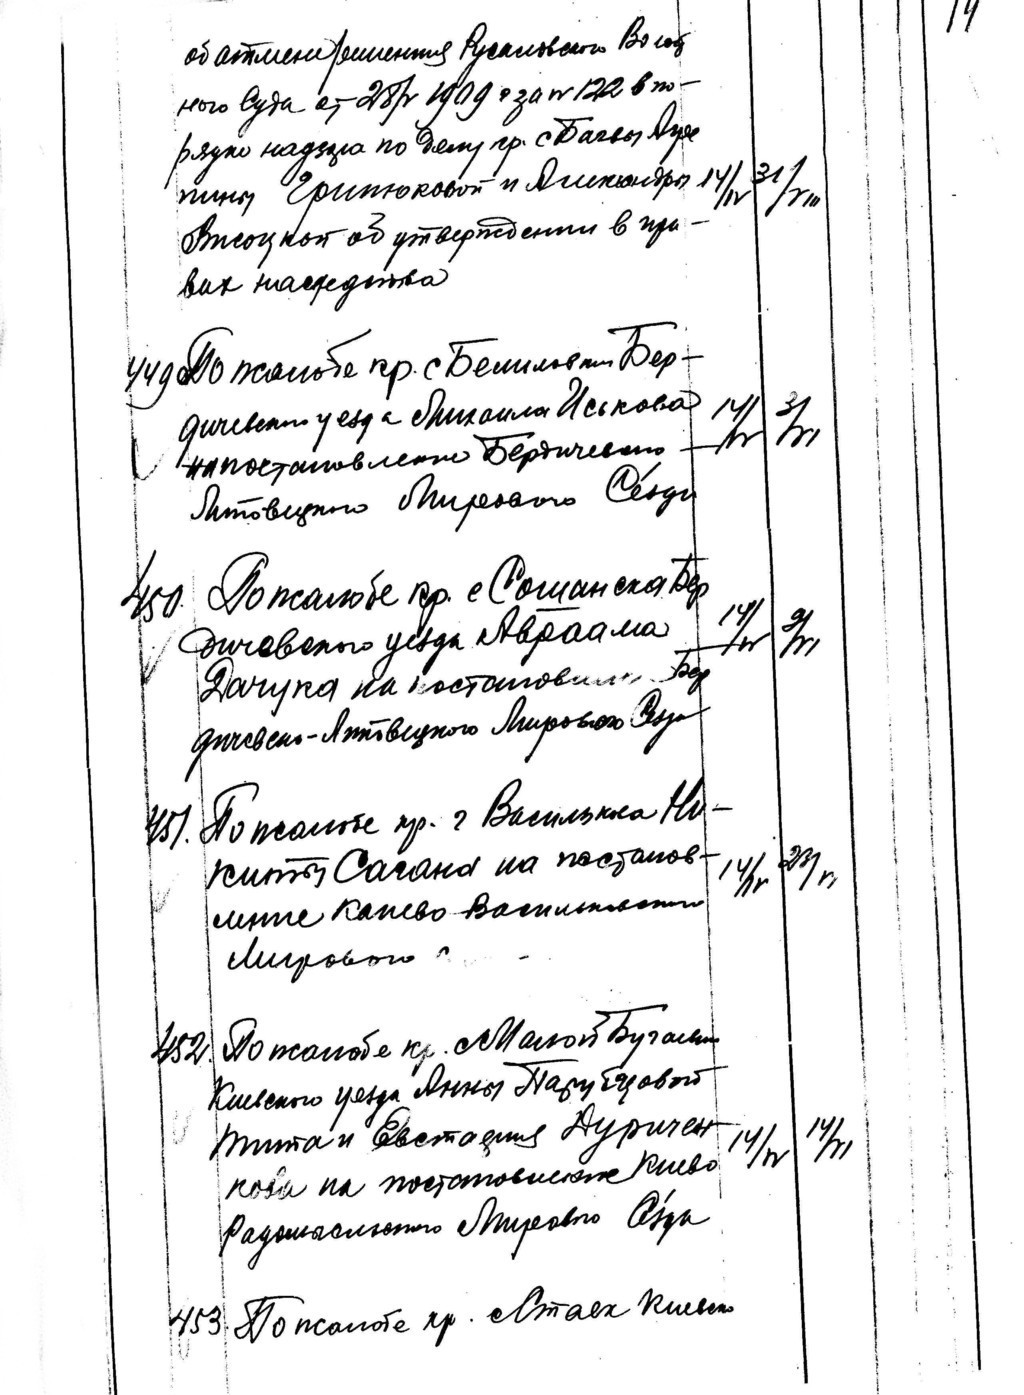 14
об отмене решения Русаловского Волост
ного Суда от 28/IV 1909 г за № 122 в по-
рядке надзора по делу гр. с Багвы Агре
пины Гринюковой и Александры 14/IV 31/VIII
Высоцкой об утверждении в пра-
вах наследства
449 По жалобе кр. с Белиловки Бер-
дичевского уезда Михаила Иськова 14/IV 3/VI
на постановление Бердичевско-
Липовецкого Мирового Съезда
450. По жалобе кр. с Сошанска Бер
дичевского уезда Авраама 14/IV 9/VI
Дачука на постановление Бер
дичевско-Липовецкого Мирового Съезда
451. По жалобе кр. г Василькова Ни-
киты Сагана на постанов- 14/IV 23/VI
ление Канево-Васильковского
Мирового
452. По жалобе кр. с Малой Бугаевки
Киевского уезда Анны Парубцовой
Тита и Евстафия Дуричен 14/IV 14/VI
кова на постановление Киево
Радомысльского Мирового Съезда
453. По жалобе кр. с Стаек Киевско